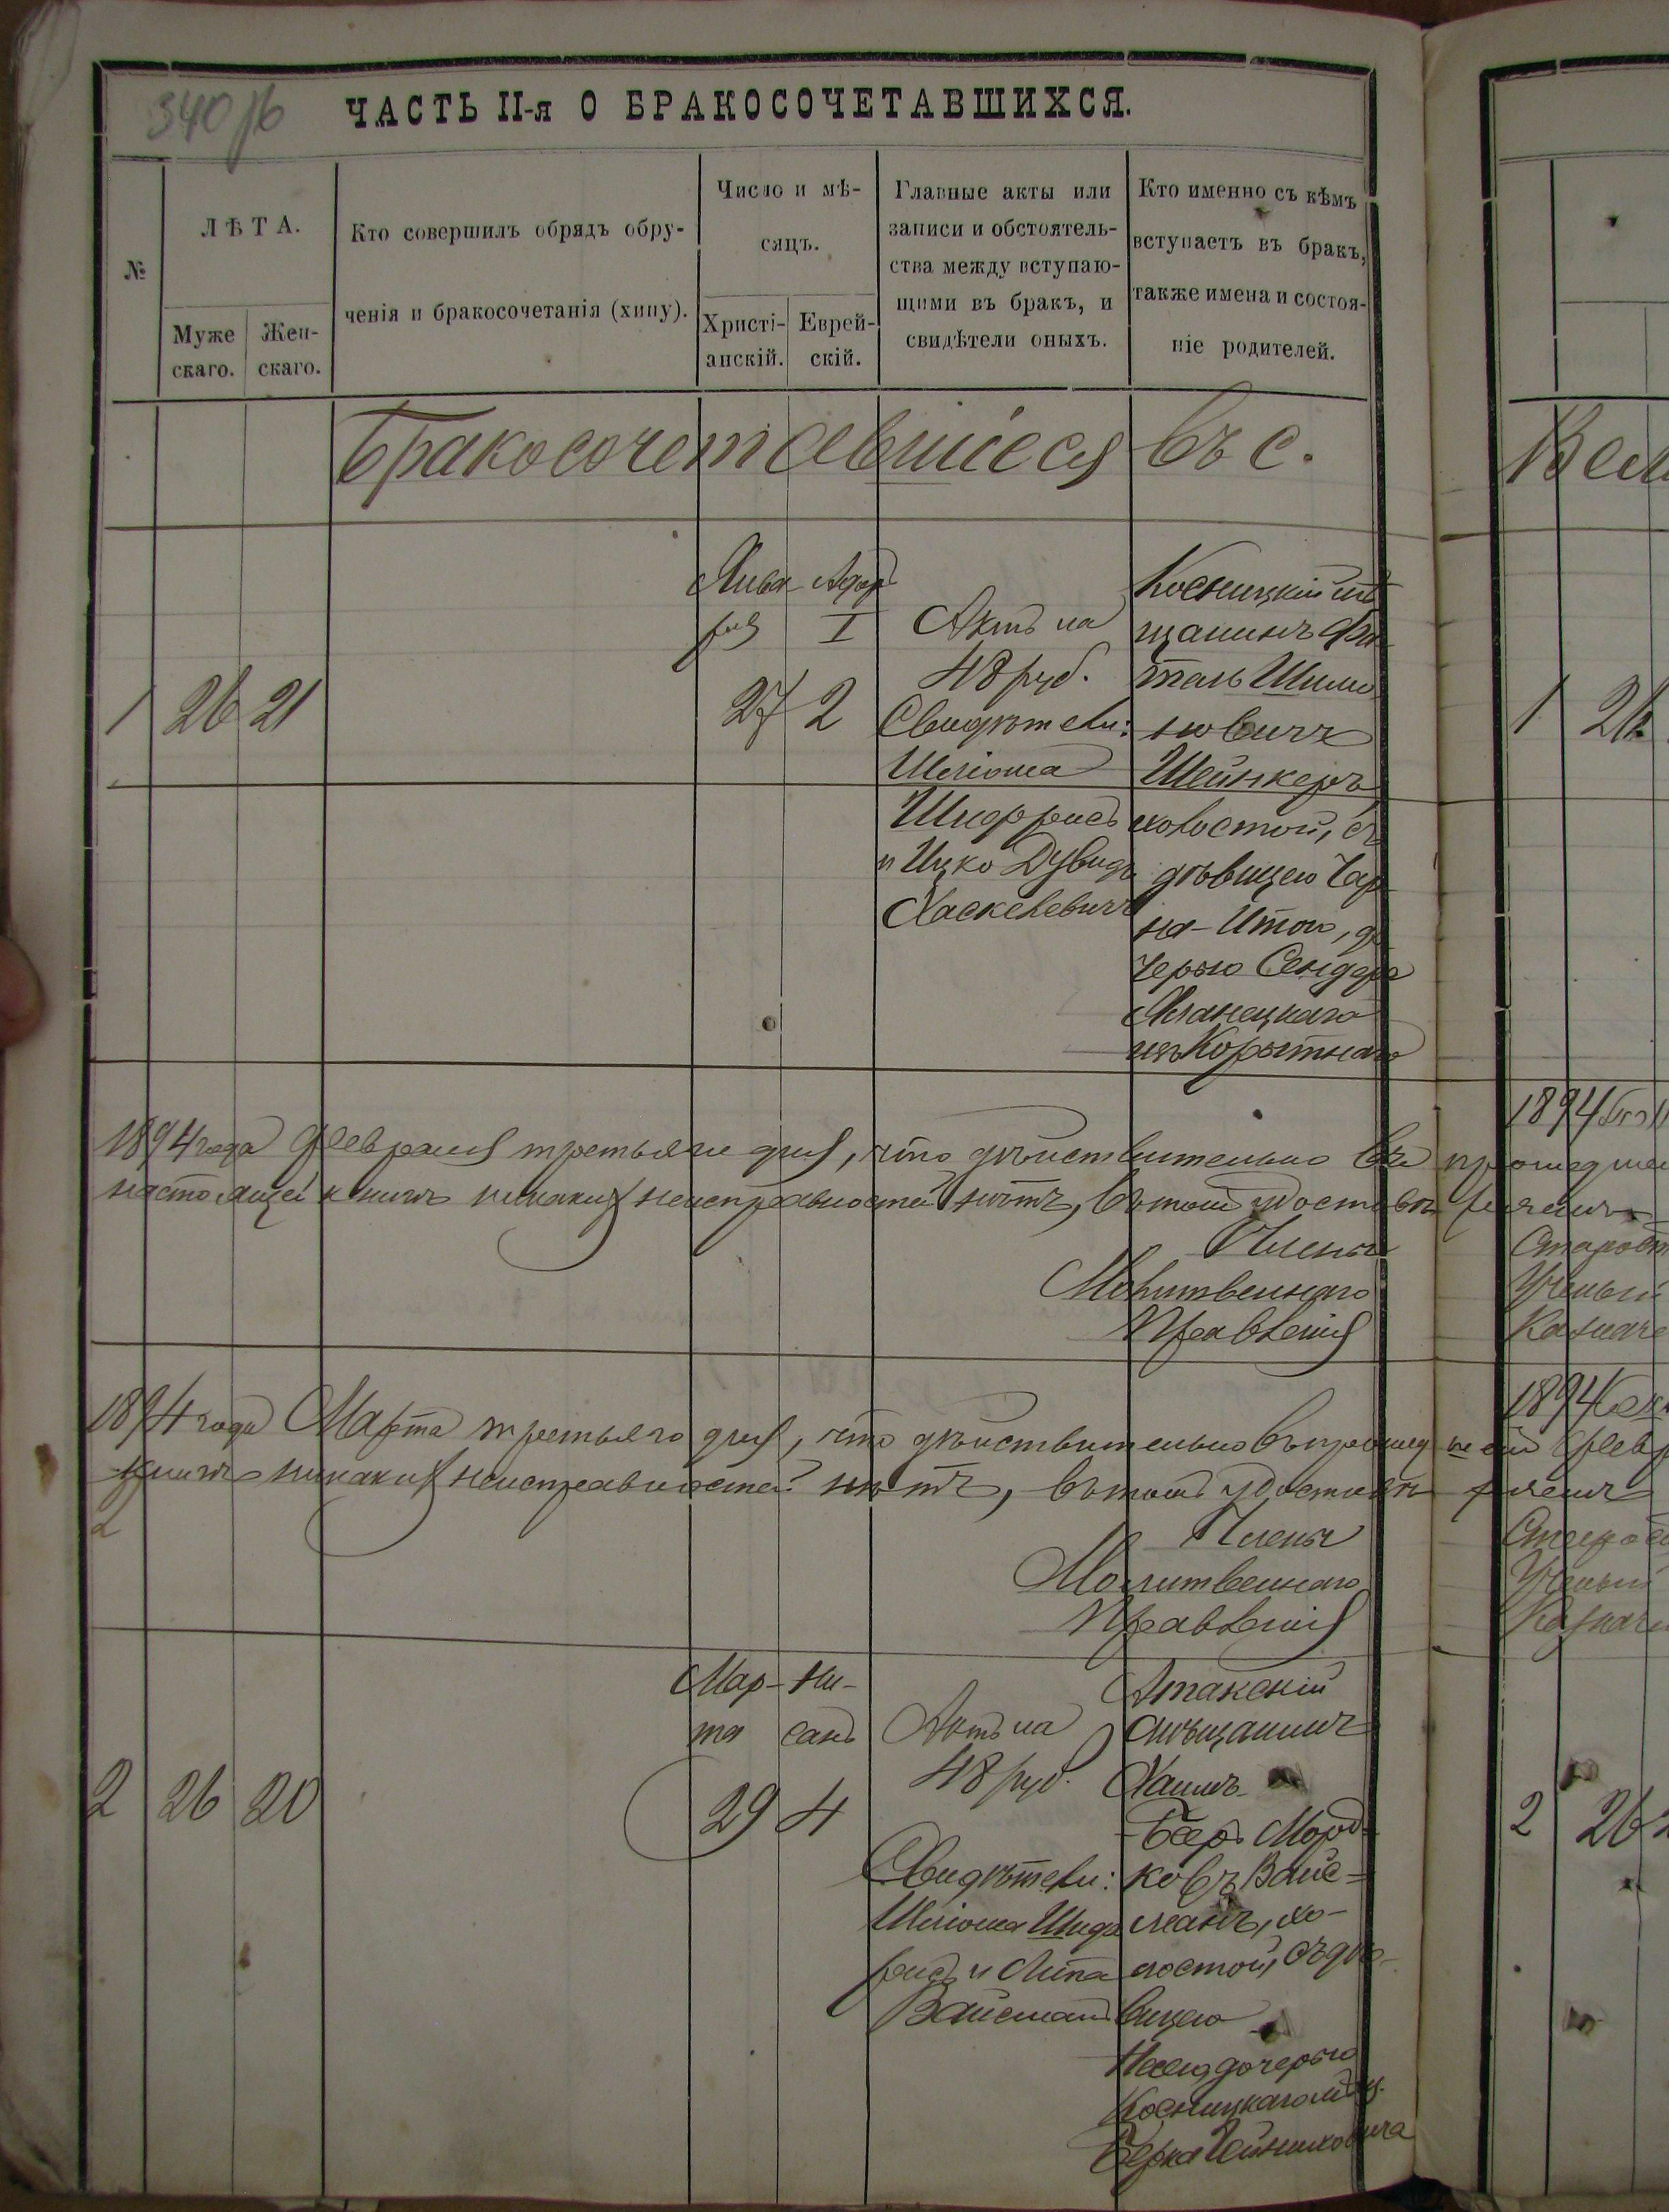 340 об
ЧАСТЬ II-я О БРАКОСОЧЕТАВШИХСЯ.
№
ЛѢТА.
Муже
скаго.
Жен-
скаго.
Кто совершилъ обрядъ обру-
ченія и бракосочетанія (хупу).
Число и мѣ-
сяцъ.
Христі-
анскій.
Еврей-
скій.
Главные акты или
записи и обстоятель-
ства между вступаю-
щими въ бракъ, и
свидѣтели оныхъ.
Кто именно съ кѣмъ
вступаетъ въ бракъ,
также имена и состоя-
ніе родителей.
Бракосочетавшіеся въ с.
1 26 21
Янва-
ря
27
Адар
I
2
Актъ на
48 руб.
Свидѣтели:
Шліома
Шифрисъ
и Ицко Дувидъ
Хаскелевичъ
Косницкій мѣ
щанинъ
таль Шимо
новичъ
Шейнкеръ
холостой, съ
дѣвицею Чар
на-Итою, до
черью Сендера
изъ Корытнаго
1894 года Февраля третьяго дня, что дѣйствительно въ прошедшем
настоящей книгѣ никакихъ неисправностей нѣтъ, въ томъ удостовѣряемъ
Члены
Молитвеннаго
Правленія
1894 года Марта третьяго дня, что дѣйствительно въ прошедшемъ Февр
книгѣ никакихъ неисправностей нѣтъ, въ томъ удостовѣряемъ
Члены
Молитвеннаго
Правленія
2 26 20
Мар-
та
29
Ни-
санъ
4
Актъ на
48 руб.
Свидѣтели:
Шліома Шиф
рисъ и Липа
Вайсманъ
Атакскій
мѣщанинъ
Хаимъ-
-Беръ Морд-
ковъ Вайс=
манъ, хо-
лостой, съ дѣ-
вицею
дочерью
Косницкаго мѣщ.
Берка
Вел
1 26
1894
Старост
Ученый
Казначе
1894
Старос
Ученый
Казначе
2 26